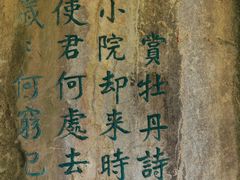 賞牡丹詩
小院却来時
使君何處去
歲歲何窮已